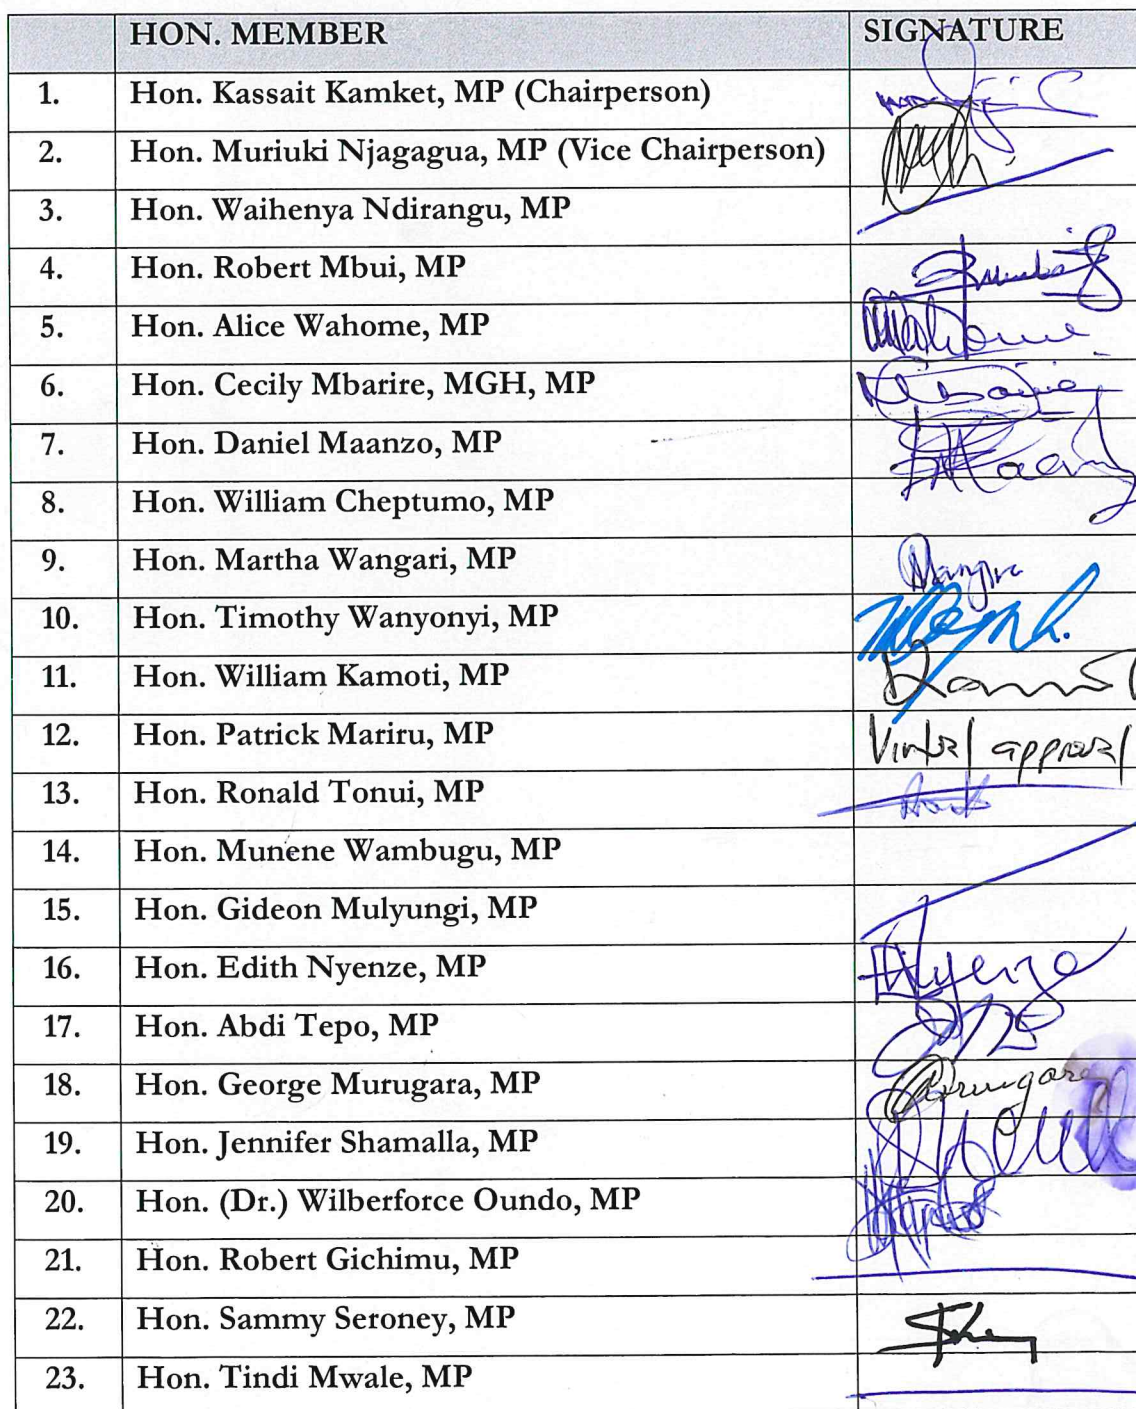 HON. MEMBER SIGNATURE
1. Hon. Kassait Kamket, MP (Chairperson)
2. Hon. Muriuki Njagagua, MP (Vice Chairperson)
3. Hon. Waihenya Ndirangu, MP
4. Hon. Robert Mbui, MP
5. Hon. Alice Wahome, MP
6. Hon. Cecily Mbarire, MGH, MP
7. Hon. Daniel Maanzo, MP
8. Hon. William Cheptumo, MP
9. Hon. Martha Wangari, MP
10. Hon. Timothy Wanyonyi, MP
11. Hon. William Kamoti, MP
12. Hon. Patrick Mariru, MP
13. Hon. Ronald Tonui, MP
14. Hon. Munene Wambugu, MP
15. Hon. Gideon Mulyungi, MP
16. Hon. Edith Nyenze, MP
17. Hon. Abdi Tepo, MP
18. Hon. George Murugara, MP
19. Hon. Jennifer Shamalla, MP
20. Hon. (Dr.) Wilberforce Oundo, MP
21. Hon. Robert Gichimu, MP
22. Hon. Sammy Seroney, MP
23. Hon. Tindi Mwale, MP